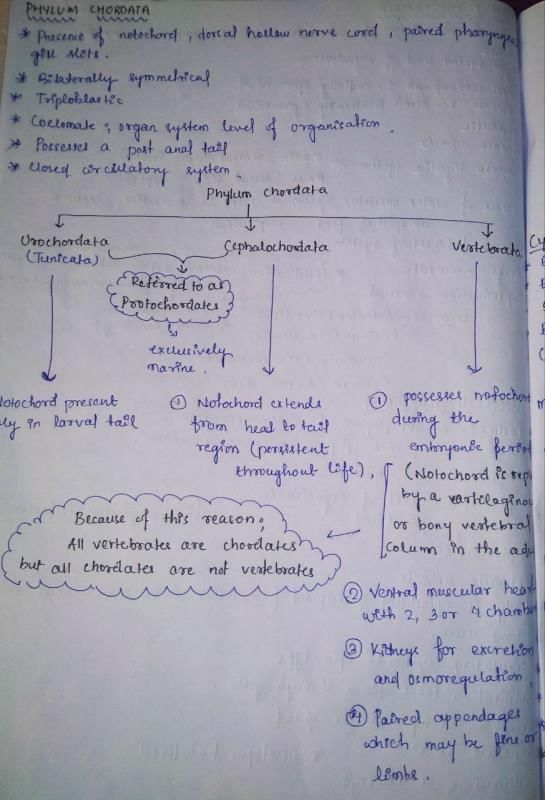 PHYLUM CHORDATA
* Presence of notochord, dorsal hollow nerve cord, paired pharynge
gill slits.
* Bilaterally symmetrical
* Triploblastic
* Coelomate; organ system level of organisation.
* Possesses a post anal tail
* Closed circulatory system.
Phylum chordata
Urochordata
(Tunicata)
Cephalochordata
Vertebrata
Referred to as
Protochordates
exclusively
marine.
Notochord present
ly in larval tail
① Notochord extends
from head to tail
region (persistent
throughout life),
① possesses notochord
during the
embryonic period
(Notochord is rep
by a cartilagino
or bony vertebral
column in the adu
Because of this reason;
All vertebrates are chordates
but all chordates are not vertebrates
② Ventral muscular heart
with 2, 3 or 4 chambe
③ Kidneys for excretion
and osmoregulation,
④ Paired appendages
which may be fins or
limbs.